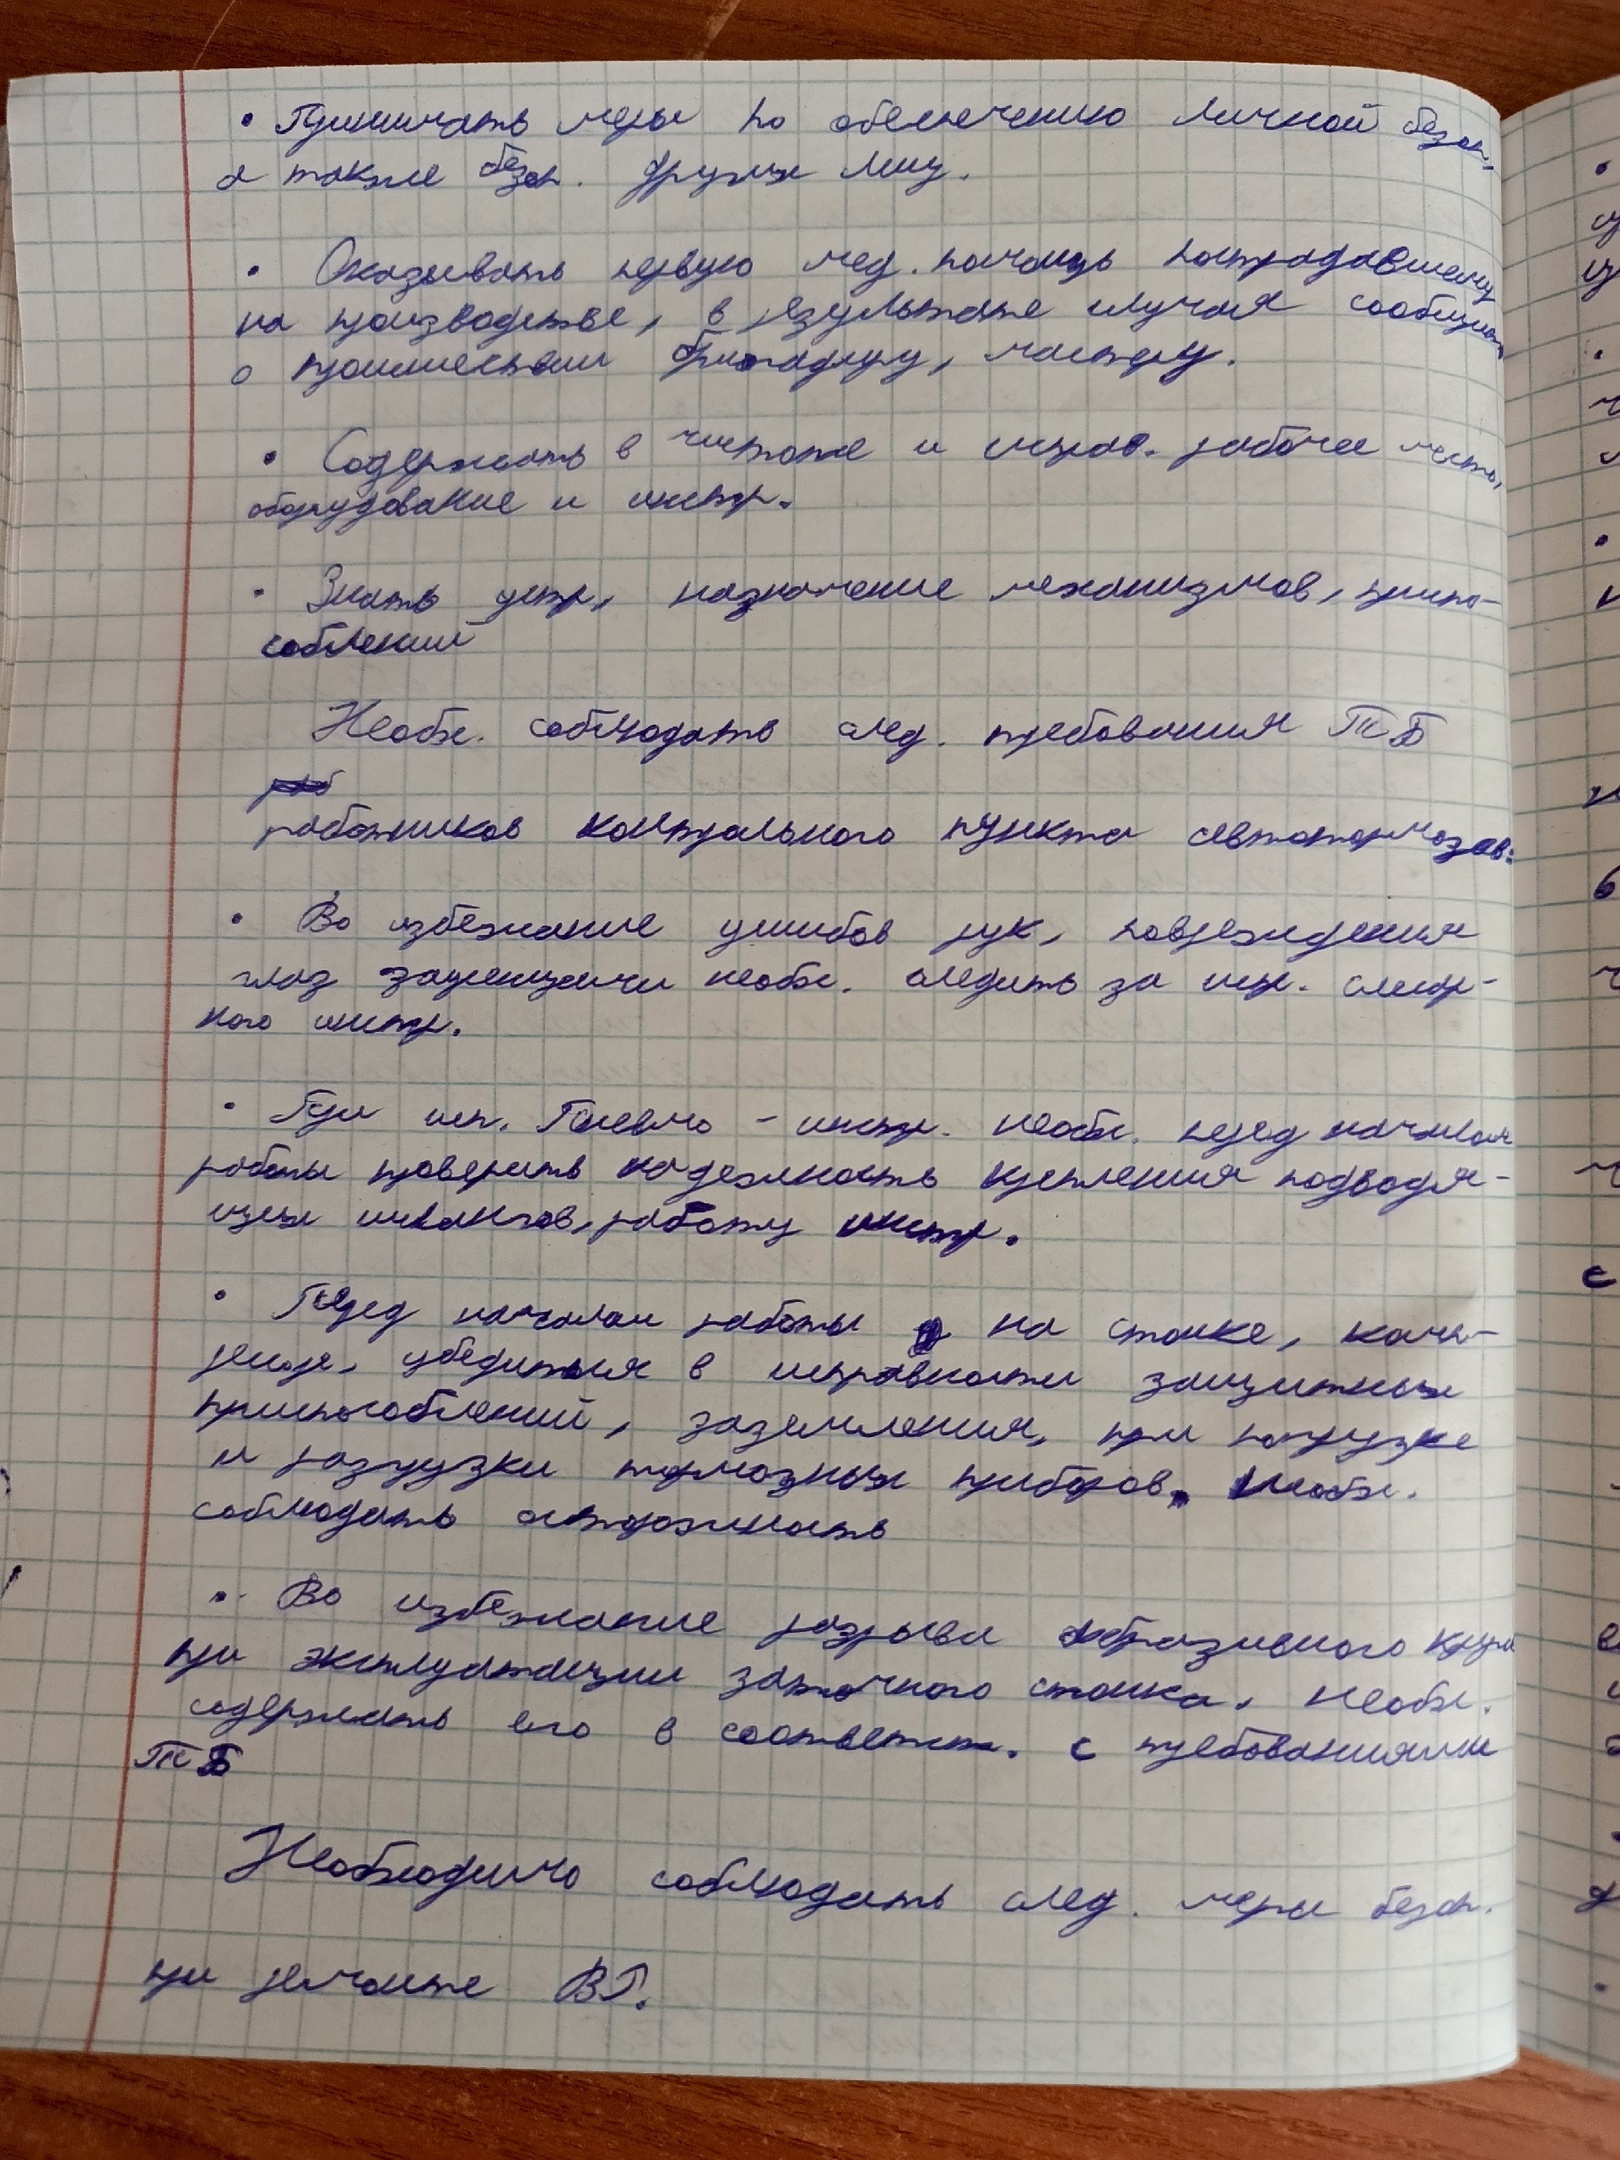 • Принимать меры по обеспечению личной безоп.,
а также безоп. других лиц.
• Оказывать первую мед. помощь пострадавшему
на производстве, в результате случая сообщить
о происшествии бригадиру, мастеру.
• Содержать в чистоте и исправ. рабочее место,
оборудование и инстр.
• Знать устр, назначение механизмов, приспо-
соблений
Необх. соблюдать след. требования ТБ
работников контрального пункта автотормозов:
• Во избежание ушибов рук, повреждения
глаз необх. следить за испр. слесар-
ного инстр.
• При исп. Пневмо - инстр. необх. перед началом
работы проверить надежность крепления подводя-
щих шлангов, работу инстр.
• Перед началом работы на станке,
убедиться в исправности защитных
приспособлений, заземления, при погрузке
и разгрузки тормозных приборов, необх.
соблюдать осторожность
• Во избежание разрыва абразивного круга
при эксплуатации заточного станка, необх.
содержать его в соответст. с требованиями
ТБ
Необходимо соблюдать след. меры безоп.
при ремонте ВР.